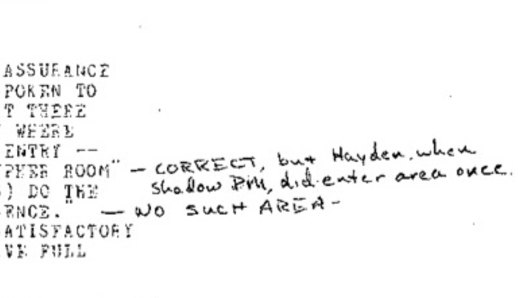 ASSURANCE
POKEN TO
T THERE
WHERE
ENTRY --
PHER ROOM" — CORRECT, but Hayden, when
) DO THE shadow PM, did enter area once.
ENCE." — NO SUCH AREA -
ATISFACTORY
VE FULL